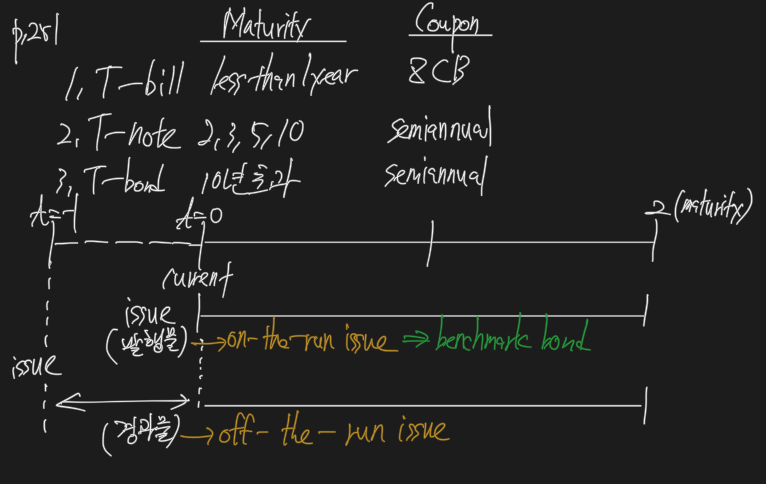 p.281
Maturity Coupon
1. T-bill less than 1 year ZCB
2. T-note 2, 3, 5, 10 semiannual
3. T-bond 10년 초과 semiannual
t=-1 t=0 2 (maturity)
current
issue
(발행물) → on-the-run issue ⇒ benchmark bond
issue
(경과물) → off-the-run issue